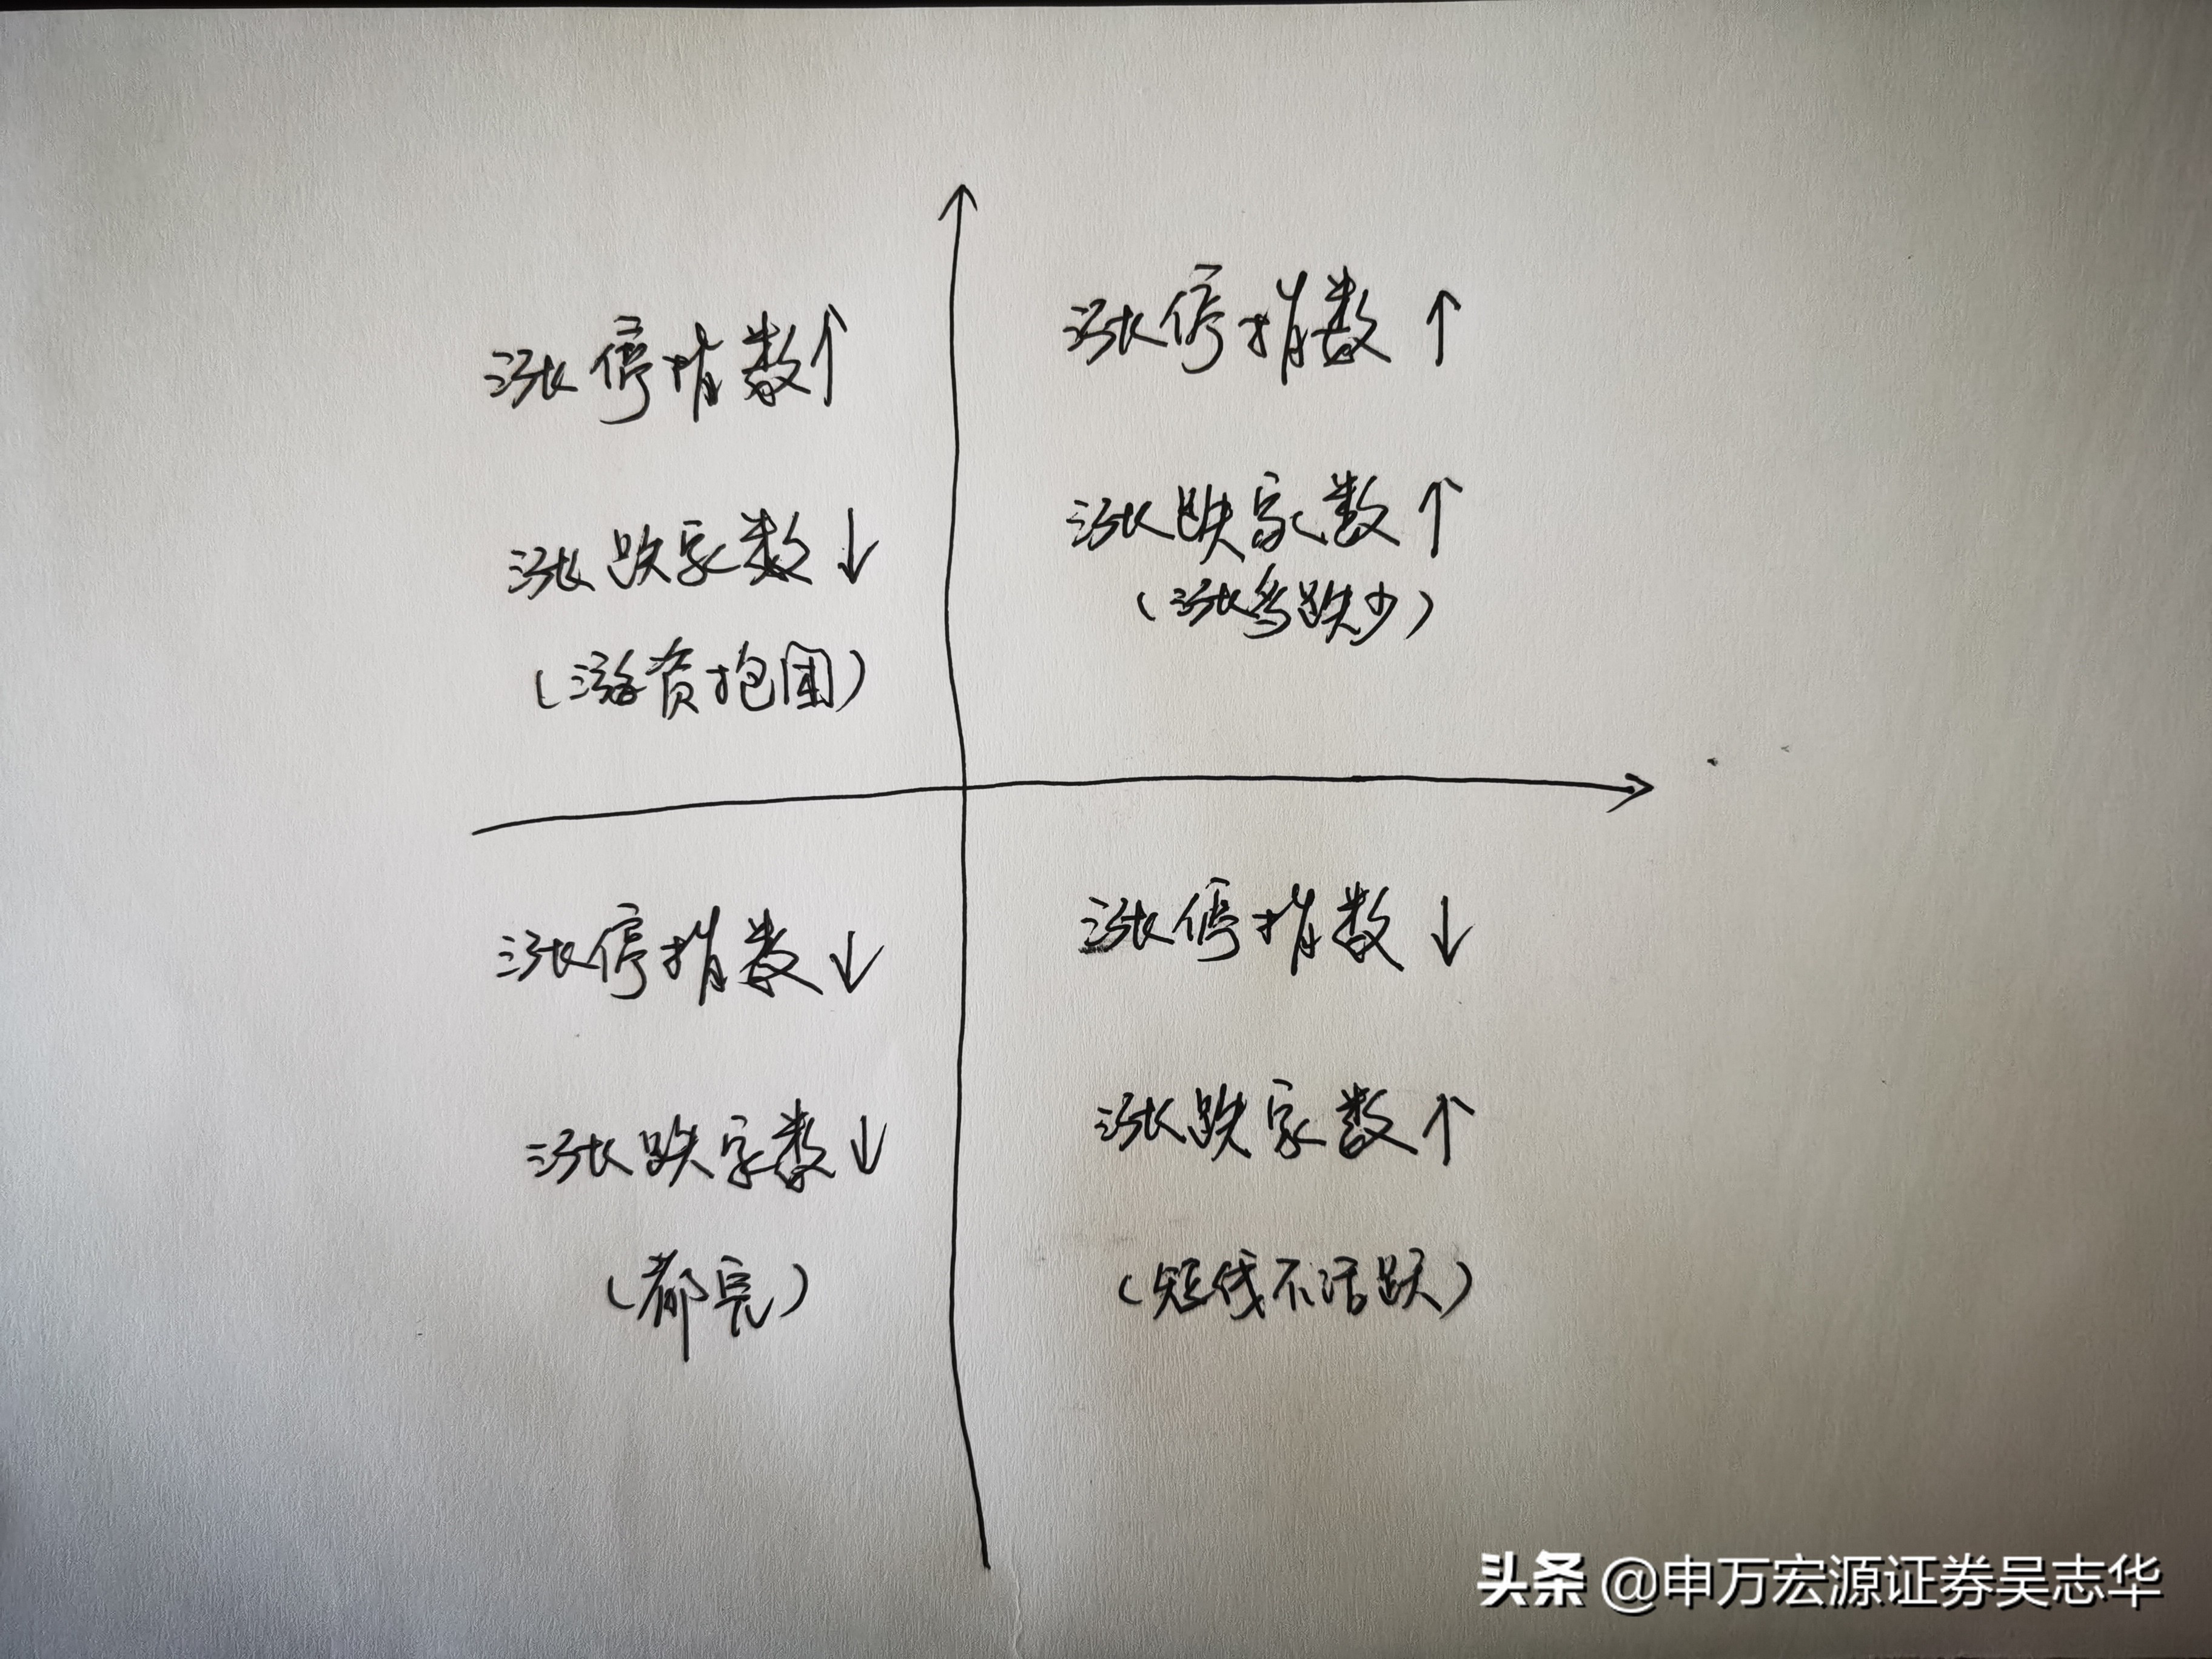 涨停指数↑
涨跌家数↓
(游资抱团)
涨停指数↑
涨跌家数↑
(涨多跌少)
涨停指数↓
涨跌家数↓
(都完)
涨停指数↓
涨跌家数↑
(短线不活跃)
头条 @申万宏源证券吴志华